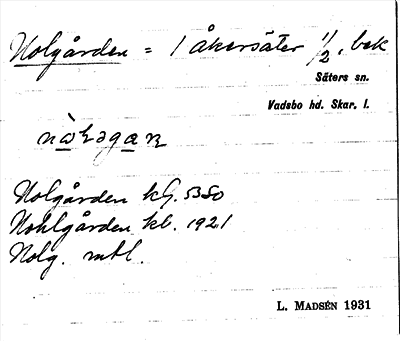 Nolgården = 1 åkersäter 1/2, bek
Säters sn.
Vadsbo hd. Skar. l.
Nolgården kG. 5380
Nohlgården kb. 1921
Nolg. mtl.
L. MADSÉN 1931